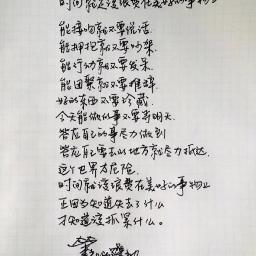 时间就应该浪费在美好的事物上
能接吻就不要说话
能拥抱就不要吵架
能行动就不要发呆
能团聚就不要推辞
好的东西不要珍藏
今天能做的事不要等明天
答应自己的事尽力做到
答应自己要去的地方就尽力抵达
这个世界太危险
时间就该浪费在美好的事物上
正因为知道失去了什么
才知道该抓紧什么